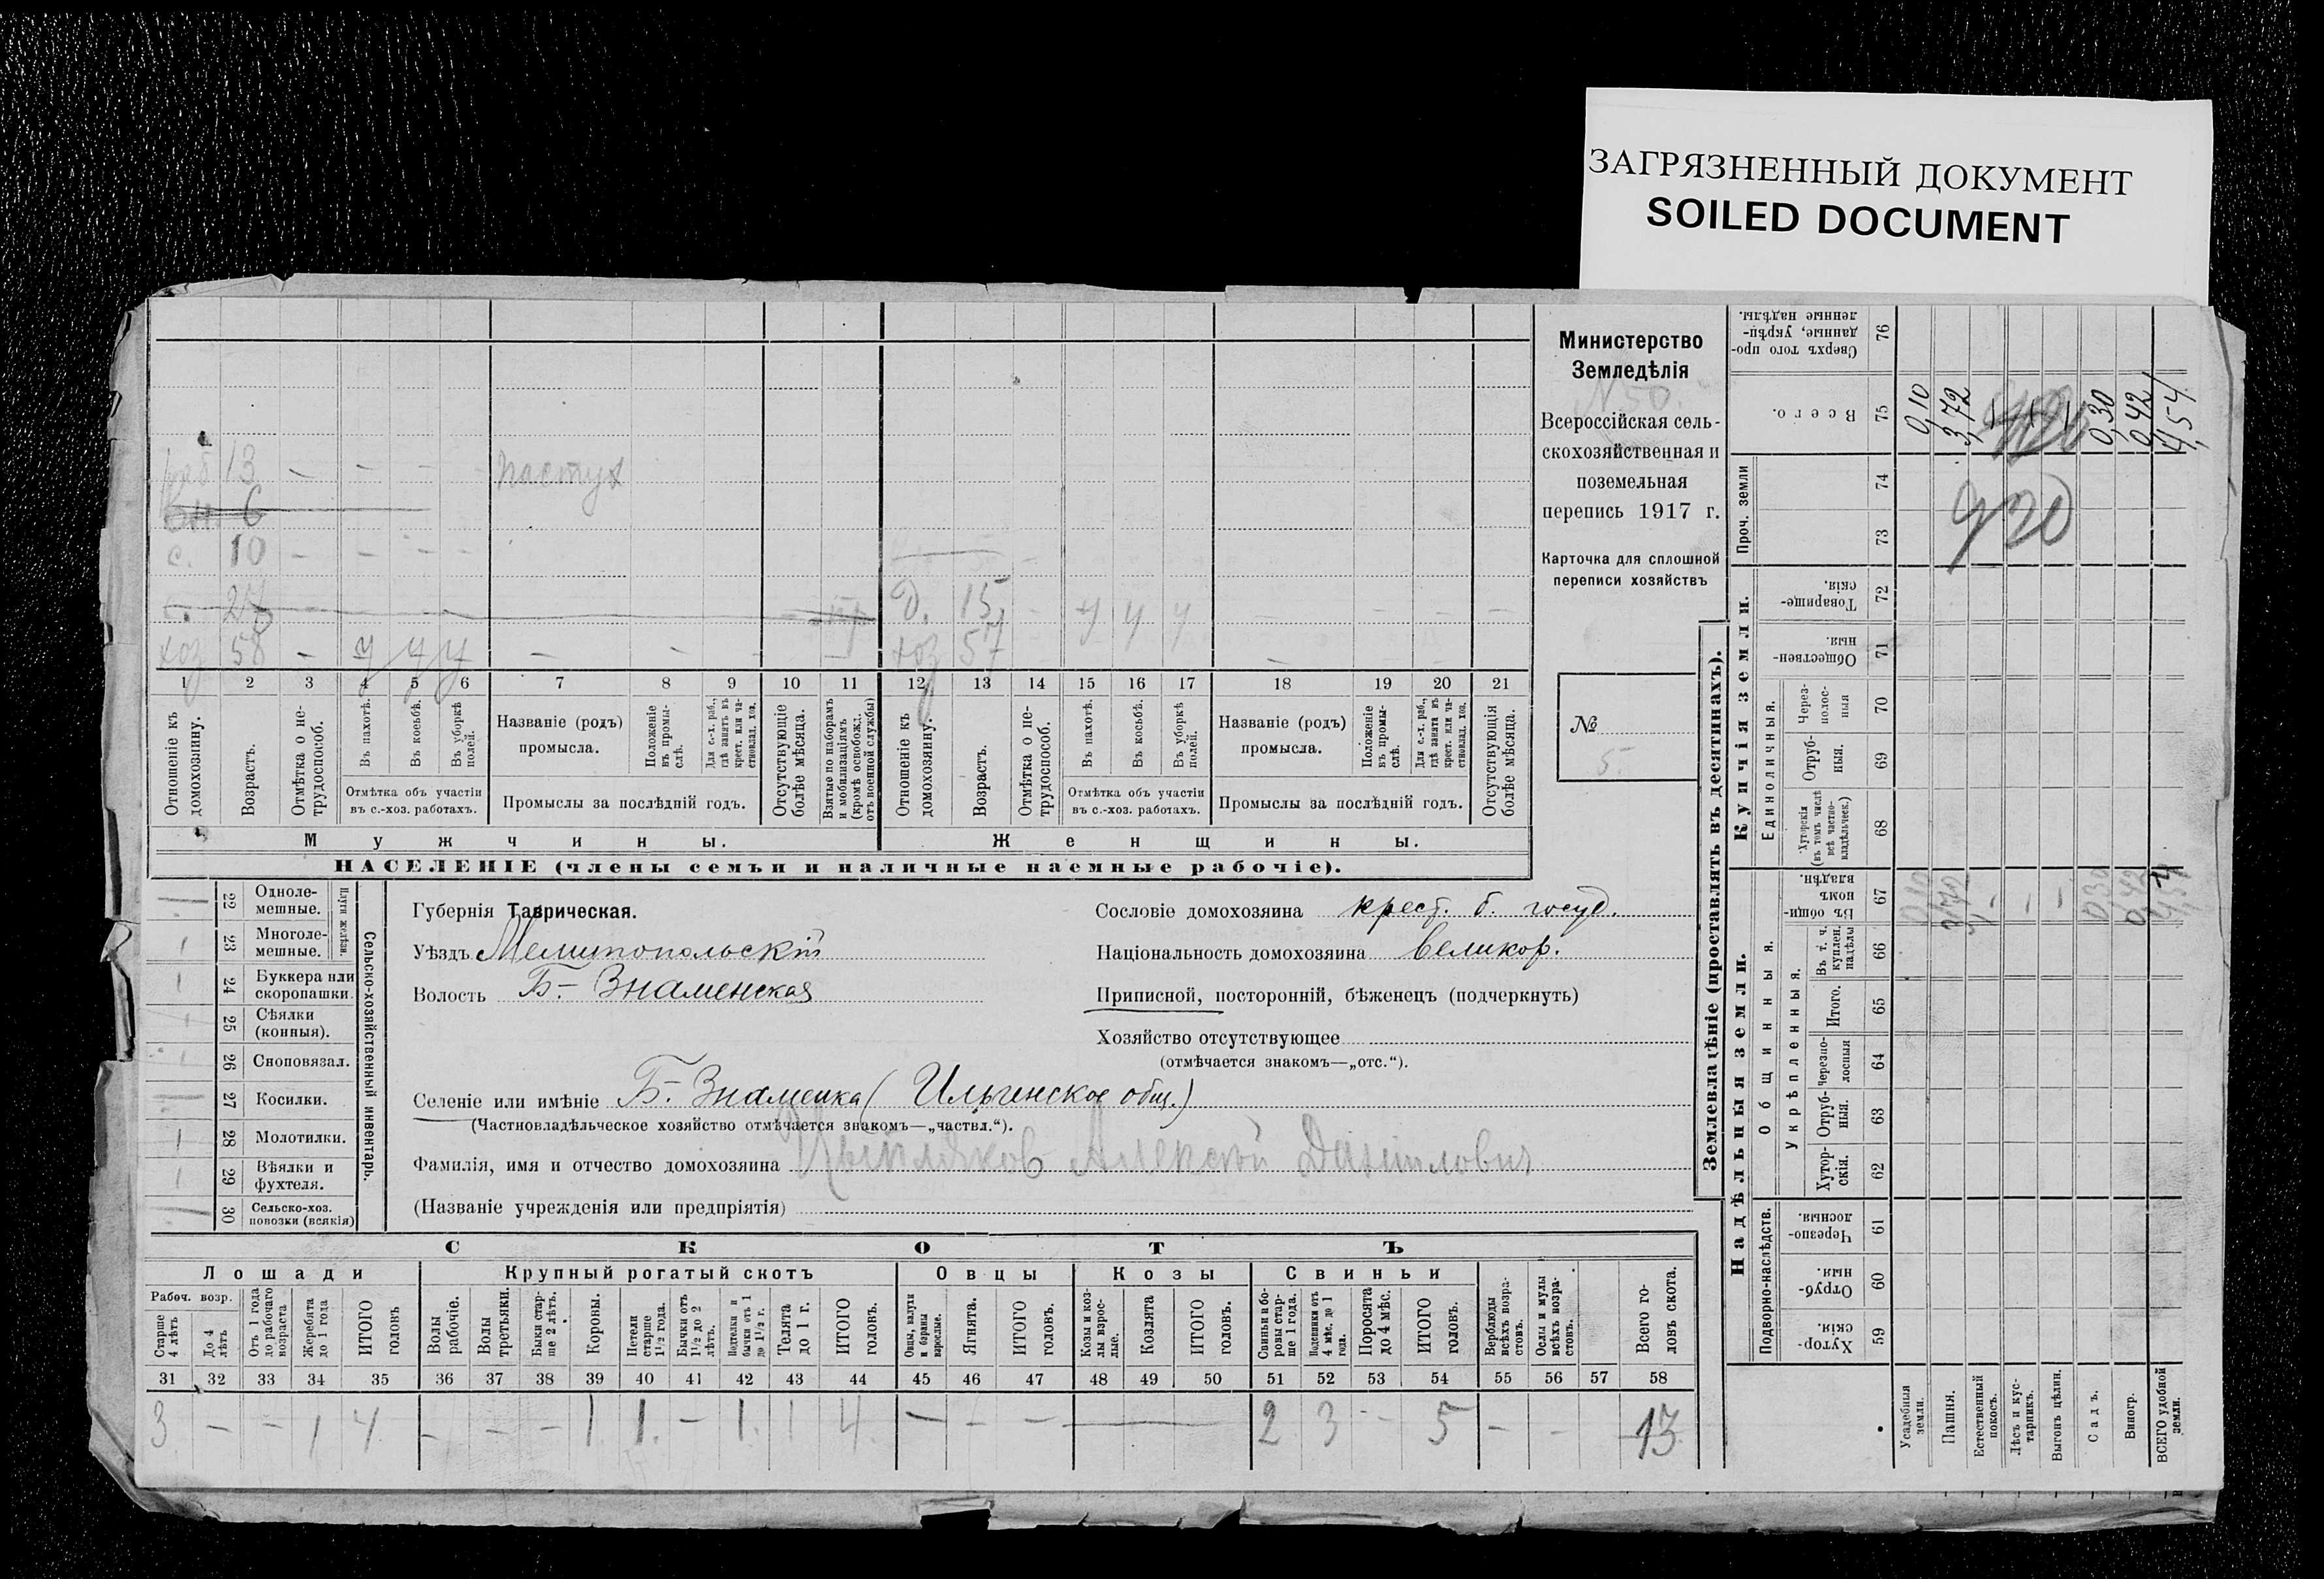 ЗАГРЯЗНЕННЫЙ ДОКУМЕНТ
SOILED DOCUMENT
Министерство
Земледѣлія
N 50.
Всероссійская сель-
скохозяйственная и
поземельная
перепись 1917 г.
Карточка для сплошной
переписи хозяйствъ
№
5.
раб 13 — — — — пастух
вн. 6
с. 10 — — — —
с. 27 д. 15 — у у у — — — —
хоз 58 — у у у — — — — хоз 57
1 2 3 4 5 6 7 8 9 10 11 12 13 14 15 16 17 18 19 20 21
Отношеніе къ домохозяину.
Возрастъ.
Отмѣтка о не-трудоспособ.
Въ пахотѣ.
Въ косьбѣ.
Въ уборкѣ полей.
Отмѣтка объ участіи въ с.-хоз. работахъ.
Названіе (родъ) промысла.
Положеніе въ промы-слѣ.
Для с.-х. раб., гдѣ занятъ въ крест. или ча-стновлад. хоз.
Промыслы за послѣдній годъ.
Отсутствующіе болѣе мѣсяца.
Взятые по наборамъ и мобилизаціямъ (кромѣ освобожд. отъ военной службы)
Отношеніе къ домохозяину.
Возрастъ.
Отмѣтка о не-трудоспособ.
Въ пахотѣ.
Въ косьбѣ.
Въ уборкѣ полей.
Отмѣтка объ участіи въ с.-хоз. работахъ.
Названіе (родъ) промысла.
Положеніе въ промы-слѣ.
Для с.-х. раб., гдѣ занята въ крест. или ча-стновлад. хоз.
Промыслы за послѣдній годъ.
Отсутствующія болѣе мѣсяца.
Мужчины. Женщины.
НАСЕЛЕНІЕ (члены семьи и наличные наемные рабочіе).
Сельско-хозяйственный инвентарь.
Плуги желѣзн.
22 Одноле-мешные.
1 23 Многоле-мешные.
1 24 Буккера или скоропашки.
1 25 Сѣялки (конныя).
1 26 Сноповязал.
27 Косилки.
1 28 Молотилки.
1 29 Вѣялки и фухтеля.
30 Сельско-хоз. повозки (всякія)
Губернія Таврическая.
Уѣздъ Мелитопольскій
Волость Б.- Знаменская
Сословіе домохозяина крест. б. госуд.
Національность домохозяина великор.
Приписной, посторонній, бѣженецъ (подчеркнуть)
Хозяйство отсутствующее
(отмѣчается знакомъ—„отс.“).
Селеніе или имѣніе Б.- Знаменка (Ильинское общ.)
(Частновладѣльческое хозяйство отмѣчается знакомъ—„частвл.“).
Фамилія, имя и отчество домохозяина Алексей Данилович
(Названіе учрежденія или предпріятія)
СКОТЪ
Лошади Крупный рогатый скотъ Овцы Козы Свиньи
Рабоч. возр.
Старше 4 лѣтъ
До 4 лѣтъ
Отъ 1 года до рабочаго возраста
Жеребята до 1 года
ИТОГО головъ
Волы рабочіе.
Волы третьяки.
Быки стар-ше 2 лѣтъ.
Коровы.
Нетели старше 1½ года.
Бычки отъ 1½ до 2 лѣтъ.
Подтелки и бычки отъ 1 до 1½ г.
Телята до 1 г.
ИТОГО головъ.
Овцы, валухи и бараны взрослые.
Ягнята.
ИТОГО головъ.
Козы и коз-лы взрос-лые.
Козлята
ИТОГО головъ.
Свиньи и бо-ровы стар-ше 1 года.
Подсвинки отъ 4 мѣс. до 1 года.
Поросята до 4 мѣс.
ИТОГО головъ.
Верблюды всѣхъ возра-стовъ.
Ослы и мулы всѣхъ возра-стовъ.
Всего го-ловъ скота.
31 32 33 34 35 36 37 38 39 40 41 42 43 44 45 46 47 48 49 50 51 52 53 54 55 56 57 58
3 — — 1 4. — — — 1 1. — 1. 1 4. — — — — 2 3 — 5 — — 13.
Землевладѣніе (проставлять въ десятинахъ).
Надѣльныя земли.
Купчія земли.
Проч. земли
Подворно-наслѣдств.
Общинныя.
Укрѣпленныя.
Единоличныя.
Хутор-скія. 59
Отруб-ныя. 60
Черезпо-лосныя. 61
Хутор-скія. 62
Отруб-ныя. 63
Черезпо-лосныя 64
Итого. 65
Въ т. ч. куплен. надѣлы 66
Въ общи-номъ владѣн. 67
Хуторскія (въ томъ числѣ всѣ частно-владѣльческ.) 68
Отруб-ныя. 69
Через-полос-ныя 70
Обществен-ныя. 71
Товарище-скія. 72
73
74
Всего. 75
Сверхъ того про-данные, укрѣп-ленные надѣлы. 76
Усадебныя земли. 0,10 0,10
Пашня. 3,72 3,72
Естественный покосъ.
Лѣсъ и кус-тарникъ.
Выгонъ цѣлин.
Садъ. 0,30 0,30
Виногр. 0,42 0,42
ВСЕГО удобной земли. 4,54 4,54
920